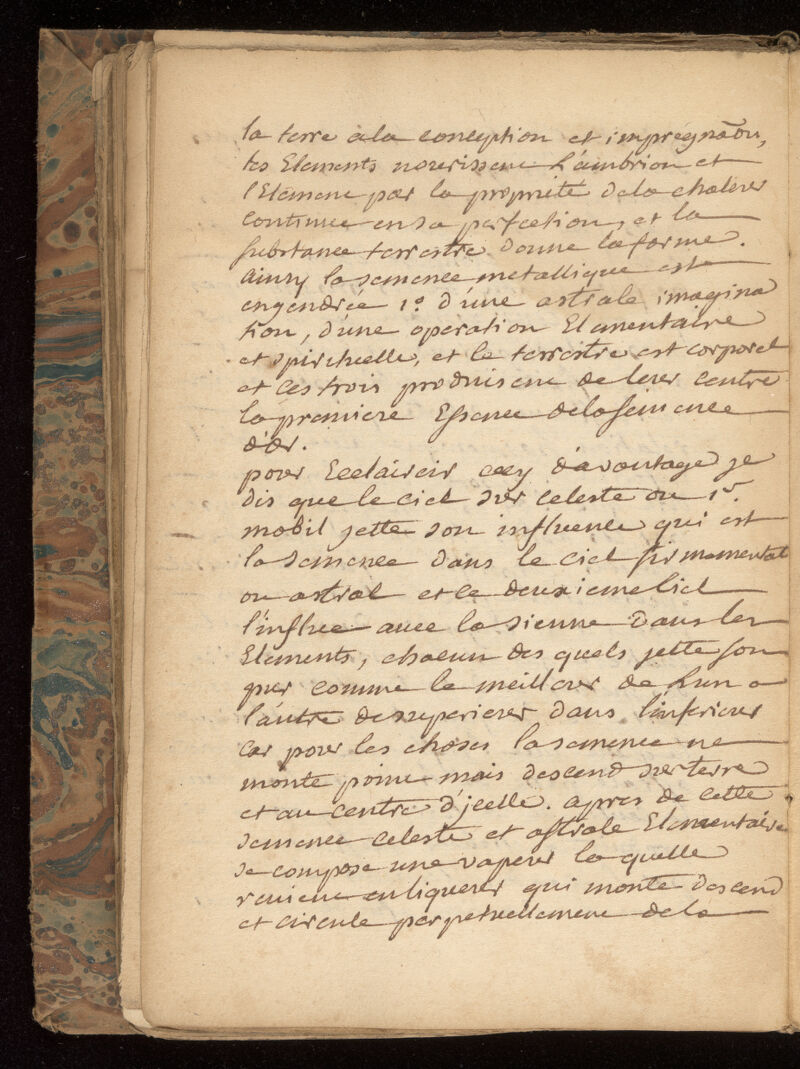 la terre a la conception et impregnãon,
les Elements nourissent l'ambrion et
l'Element par la proprieté de la chaleur
continue en sa perfection, et la
substance terrestre donne la forme.
ainsy la semence metallique est
engendrée 1.º d'une astrale imagina
tion, d'une operation Elementaire
et spirituelle, et le terrestre est corporel
et ces trois produisent de leur centre
la premiere Essence de la semence
d'or.
pour Ecclaircir cecy d'avantage je
dis que le ciel sur celeste ou 1.r
mobil jette son influence qui est
la semence dans le ciel firmamental
ou astral et ce deuxieme Ciel
l'influe avec la sienne dans les
Elements, chacun des quels jette son
pur comme le meilleur de l'un a
l'autre de superieur dans l'inferieur
car pour les choses la semence ne
monte point mais descend sur terre
et au centre d'jcelle. apres de cette
semence celeste et astrale Elementaire
se compose une vapeur la quelle
revient en liqueur qui monte descend
et circule perpetuellement de la